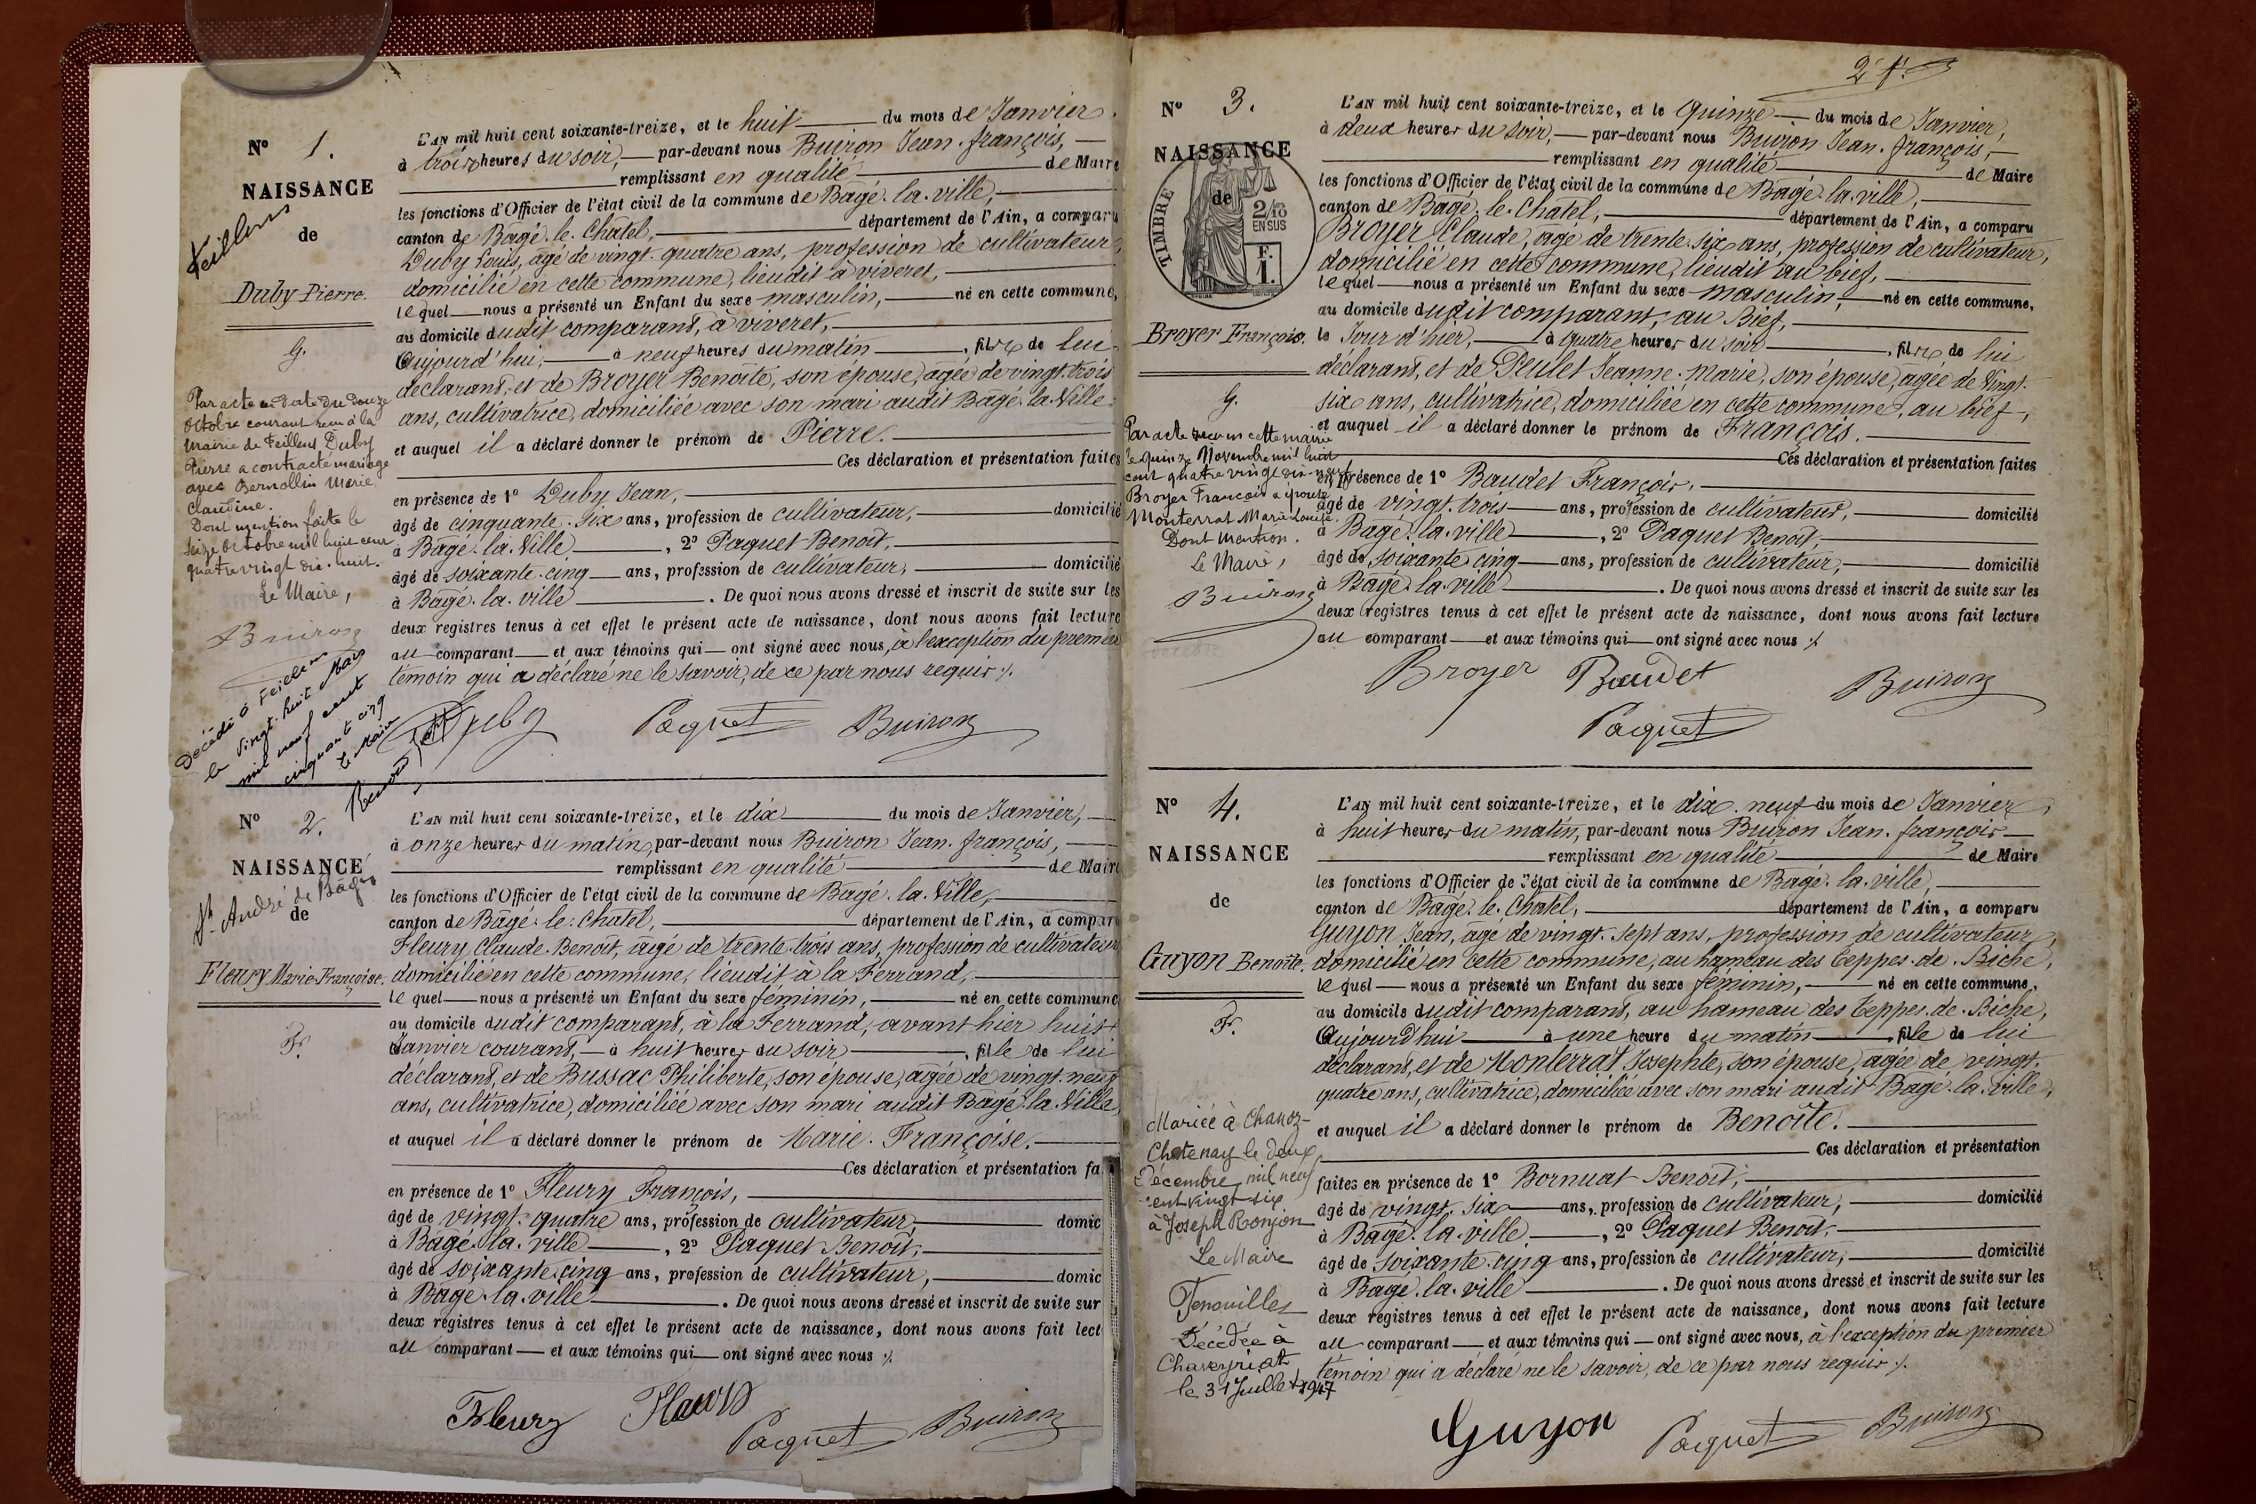 N° 1.
NAISSANCE
Feillens
de
Duby Pierre.
G.
Par acte en date du douze
Octobre courant reçu à la
Mairie de Feillens Duby
Pierre a contracté mariage
avec Bernollin Marie
Claudine.
Dont mention faite le
seize Octobre mil huit cent
quatre vingt dix-huit.
Le Maire,
Buiron
Décédé à Feillens
le vingt-huit Mars
mil neuf cent
cinquante cinq
Le Maire
L'AN mil huit cent soixante-treize, et le huit du mois de Janvier.
à trois heures du soir, par-devant nous Buiron Jean-françois,
remplissant en qualité de Maire
les fonctions d'Officier de l'état civil de la commune de Bagé-la-ville,
canton de Bagé-le-Châtel, département de l'Ain, a comparu
Duby Louis, agé de vingt-quatre ans, profession de cultivateur,
domicilié en cette commune, lieudit à viveret,
le quel nous a présenté un Enfant du sexe masculin, né en cette commune,
au domicile dudit comparant, à viveret,
Aujourd'hui, à neuf heures du matin, fils de lui
déclarant, et de Broyer Benoîte, son épouse, agée de vingt-trois
ans, cultivatrice, domiciliée avec son mari audit Bagé-la-Ville
et auquel il a déclaré donner le prénom de Pierre.
Ces déclaration et présentation faites
en présence de 1° Duby Jean,
âgé de cinquante-six ans, profession de cultivateur, domicilié
à Bagé-la-Ville, 2° Paquet Benoît,
âgé de soixante-cinq ans, profession de cultivateur, domicilié
à Bagé-la-ville. De quoi nous avons dressé et inscrit de suite sur les
deux registres tenus à cet effet le présent acte de naissance, dont nous avons fait lecture
au comparant et aux témoins qui ont signé avec nous, à l'exception du premier
témoin qui a déclaré ne le savoir, de ce par nous requis ./.
Duby Paquet Buiron
N° 2.
NAISSANCE
St André de Bagé
de
Fleury Marie-Françoise.
Fr.
L'AN mil huit cent soixante-treize, et le dix du mois de Janvier,
à onze heures du matin, par-devant nous Buiron Jean-françois,
remplissant en qualité de Maire
les fonctions d'Officier de l'état civil de la commune de Bagé-la-Ville,
canton de Bagé-le-Châtel, département de l'Ain, a comparu
Fleury Claude-Benoît, agé de trente-trois ans, profession de cultivateur
domicilié en cette commune, lieudit à la Ferrand,
le quel nous a présenté un Enfant du sexe féminin, né en cette commune
au domicile dudit comparant, à la Ferrand, avant hier huit
Janvier courant, à huit heures du soir, fille de lui
déclarant, et de Bussac Philiberte, son épouse, agée de vingt-neuf
ans, cultivatrice, domiciliée avec son mari audit Bagé-la-Ville,
et auquel il a déclaré donner le prénom de Marie-Françoise.
Ces déclaration et présentation fa
en présence de 1° Fleury François,
âgé de vingt-quatre ans, profession de cultivateur, domic
à Bagé-la-ville, 2° Paquet Benoît,
âgé de soixante-cinq ans, profession de cultivateur, domic
à Bagé-la-ville. De quoi nous avons dressé et inscrit de suite sur
deux registres tenus à cet effet le présent acte de naissance, dont nous avons fait lect
au comparant et aux témoins qui ont signé avec nous ./.
Fleury Fleury
Paquet Buiron
2e f.
N° 3.
NAISSANCE
de
TIMBRE
2/10
EN SUS
F.
1.
Broyer François.
G.
Par acte reçu en cette mairie
le quinze Novembre mil huit
cent quatre vingt dix-neuf
Broyer François a épousé
Monterrat Marie Louise.
Dont Mention.
Le Maire,
Buiron
L'AN mil huit cent soixante-treize, et le Quinze du mois de Janvier,
à deux heures du soir, par-devant nous Buiron Jean-françois,
remplissant en qualité de Maire
les fonctions d'Officier de l'état civil de la commune de Bagé-la-ville,
canton de Bagé-le-Châtel, département de l'Ain, a comparu
Broyer Claude, agé de trente-six ans, profession de cultivateur,
domicilié en cette commune, lieudit au bief,
le quel nous a présenté un Enfant du sexe masculin, né en cette commune,
au domicile dudit comparant, au Bief,
le Jour d'hier, à quatre heures du soir, fils de lui
déclarant, et de Peulet Jeanne-Marie, son épouse, agée de Vingt-
six ans, cultivatrice, domiciliée en cette commune, au bief,
et auquel il a déclaré donner le prénom de François.
Ces déclaration et présentation faites
en présence de 1° Baudet François,
âgé de vingt-trois ans, profession de cultivateur, domicilié
à Bagé-la-ville, 2° Paquet Benoît,
âgé de soixante-cinq ans, profession de cultivateur, domicilié
à Bagé-la-ville. De quoi nous avons dressé et inscrit de suite sur les
deux registres tenus à cet effet le présent acte de naissance, dont nous avons fait lecture
au comparant et aux témoins qui ont signé avec nous ./.
Broyer Baudet Buiron
Paquet
N° 4.
NAISSANCE
de
Guyon Benoîte.
Fr.
Mariée à Chanoz-
Chatenay le deux
Décembre mil neuf
cent vingt six
à Joseph Ronjon
Le Maire
Fenouillet
Décédée à
Chaveyriat
le 31 Juillet 1947
L'AN mil huit cent soixante-treize, et le dix-neuf du mois de Janvier,
à huit heures du matin, par-devant nous Buiron Jean-françois
remplissant en qualité de Maire
les fonctions d'Officier de l'état civil de la commune de Bagé-la-ville,
canton de Bagé-le-Châtel, département de l'Ain, a comparu
Guyon Jean, agé de vingt-sept ans, profession de cultivateur,
domicilié en cette commune, au hameau des Teppes-de-Biche,
le quel nous a présenté un Enfant du sexe féminin, né en cette commune,
au domicile dudit comparant, au hameau des Teppes-de-Biche,
Aujourd'hui à une heure du matin, fille de lui
déclarant, et de Monterrat Josephte, son épouse, agée de vingt-
quatre ans, cultivatrice, domiciliée avec son mari audit Bagé-la-ville,
et auquel il a déclaré donner le prénom de Benoîte.
Ces déclaration et présentation
faites en présence de 1° Bornuat Benoît,
âgé de vingt-six ans, profession de cultivateur, domicilié
à Bagé-la-ville, 2° Paquet Benoît,
âgé de soixante-cinq ans, profession de cultivateur, domicilié
à Bagé-la-ville. De quoi nous avons dressé et inscrit de suite sur les
deux registres tenus à cet effet le présent acte de naissance, dont nous avons fait lecture
au comparant et aux témoins qui ont signé avec nous, à l'exception du premier
témoin qui a déclaré ne le savoir, de ce par nous requis ./.
Guyon Paquet Buiron